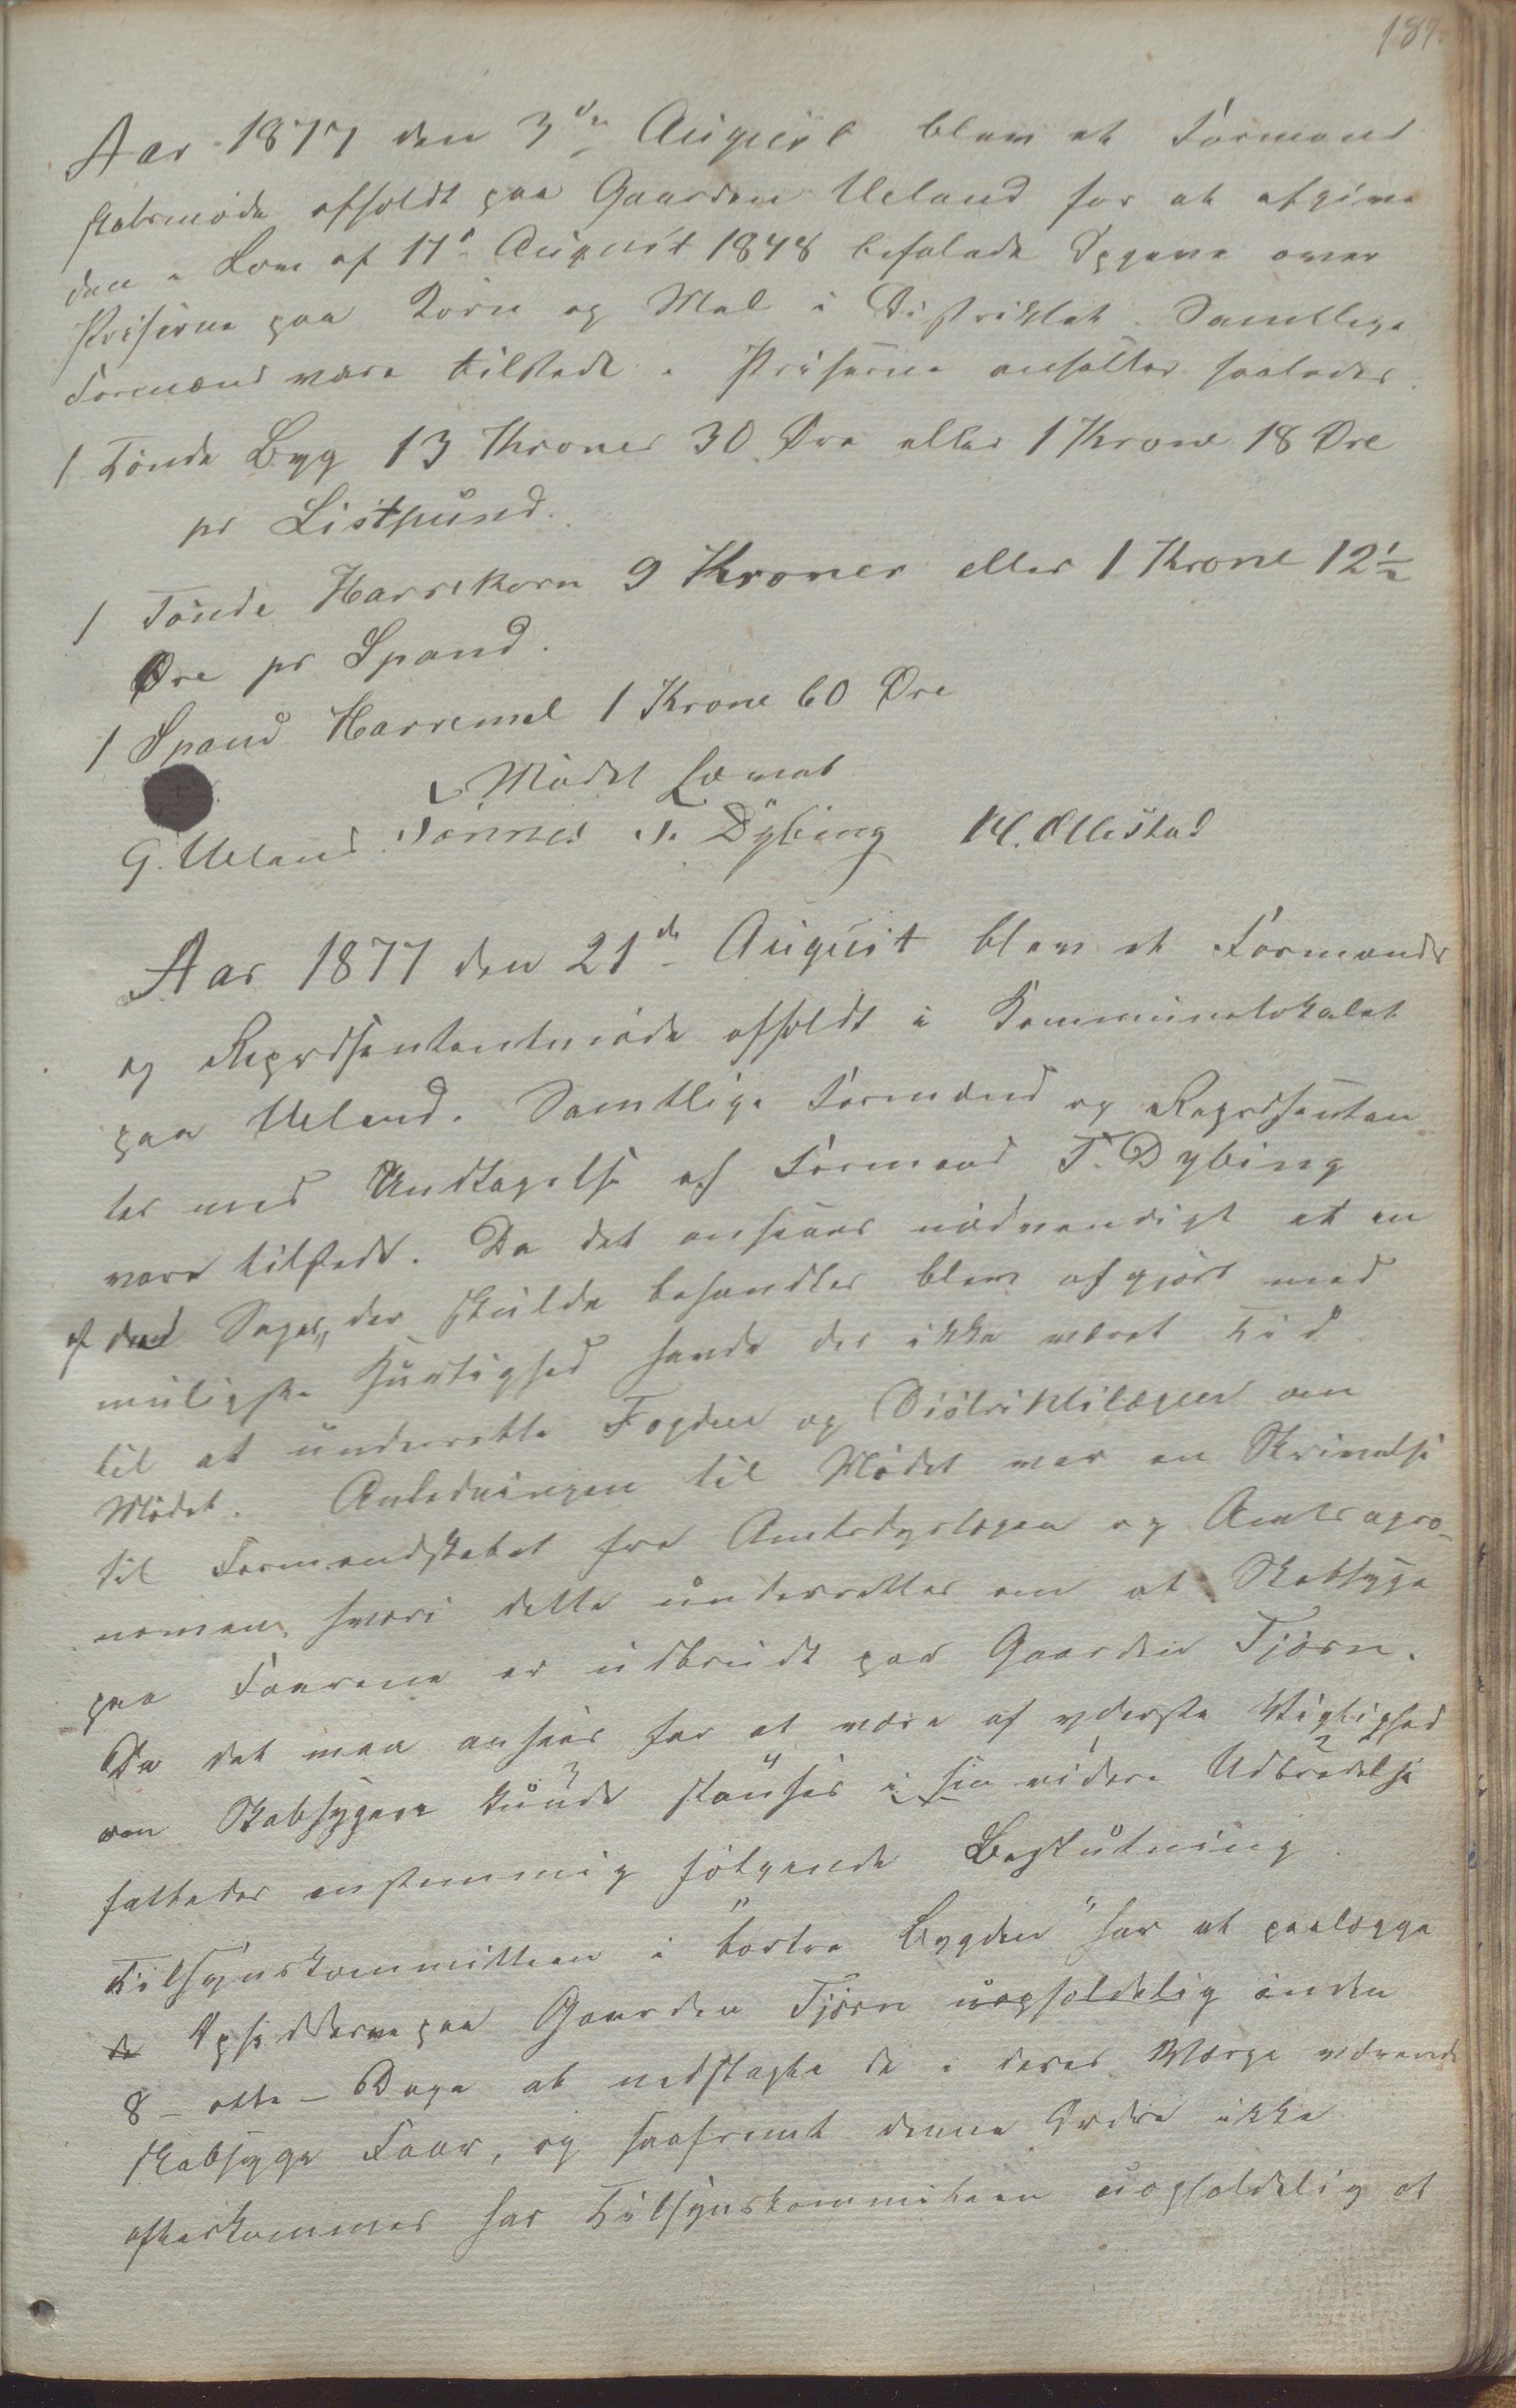 187.
Aar 1877 den 3die August blev et Formand
skabsmøde afholdt paa Gaarden Ueland for at afgive
den i Lov af 11te August 1848 befalede Opgave over
Priserne paa Korn og Mel i Distriktet. Samtlige
Formænd vare tilstede. Priserne ansættes saaledes.
1 Tønde Byg 13 Kroner 30 Øre eller 1 Krone 18 Øre
pr Listpund.
1 Tønde Havrekorn 9 Kroner eller 1 Krone 12½
Øre pr Spand.
1 Spand Havremel 1 Krone 60 Øre
Mødet hævet
G. Ueland. Tønnes T. Dybing M. Ollestad
Aar 1877 den 21de August blev et Formands
og Repræsentantmøde afholdt i Kommunelokalet
paa Ueland. Samtlige Formænd og Repræsentan
ter med Undtagelse af Formand T. Dybing
vare tilstede. Da det ansaaes nødvendigt at en
af de Sager, der skulde behandles blev afgjort med
muligste Hurtighed havde der ikke været Tid
til at underrette Fogden og Distriktslægen om
Mødet. Anledningen til Mødet var en Skrivelse
til Formandskabet fra Amtsdyrlægen og Amtsagro-
nomen, hvori dette underrettes om at Skabsyge
paa Faarene er udbrudt paa Gaarden Tjørn.
Da det maa ansees for at være af yderste Vigtighed
om Skabsygen kunde standses i sin videre Udbredelse
fattedes enstemmig følgende Beslutning.
Tilsynskommitteen i "østre Bygden" har at paalægge
de Opsidderne paa Gaarden Tjørn uopholdelig inden
8 - otte - Dage at nedslagte de i deres Værge værende
skabsyge Faar, og saafremt denne Ordre ikke
efterkommes har Tilsynskommiteen uopholdelig at